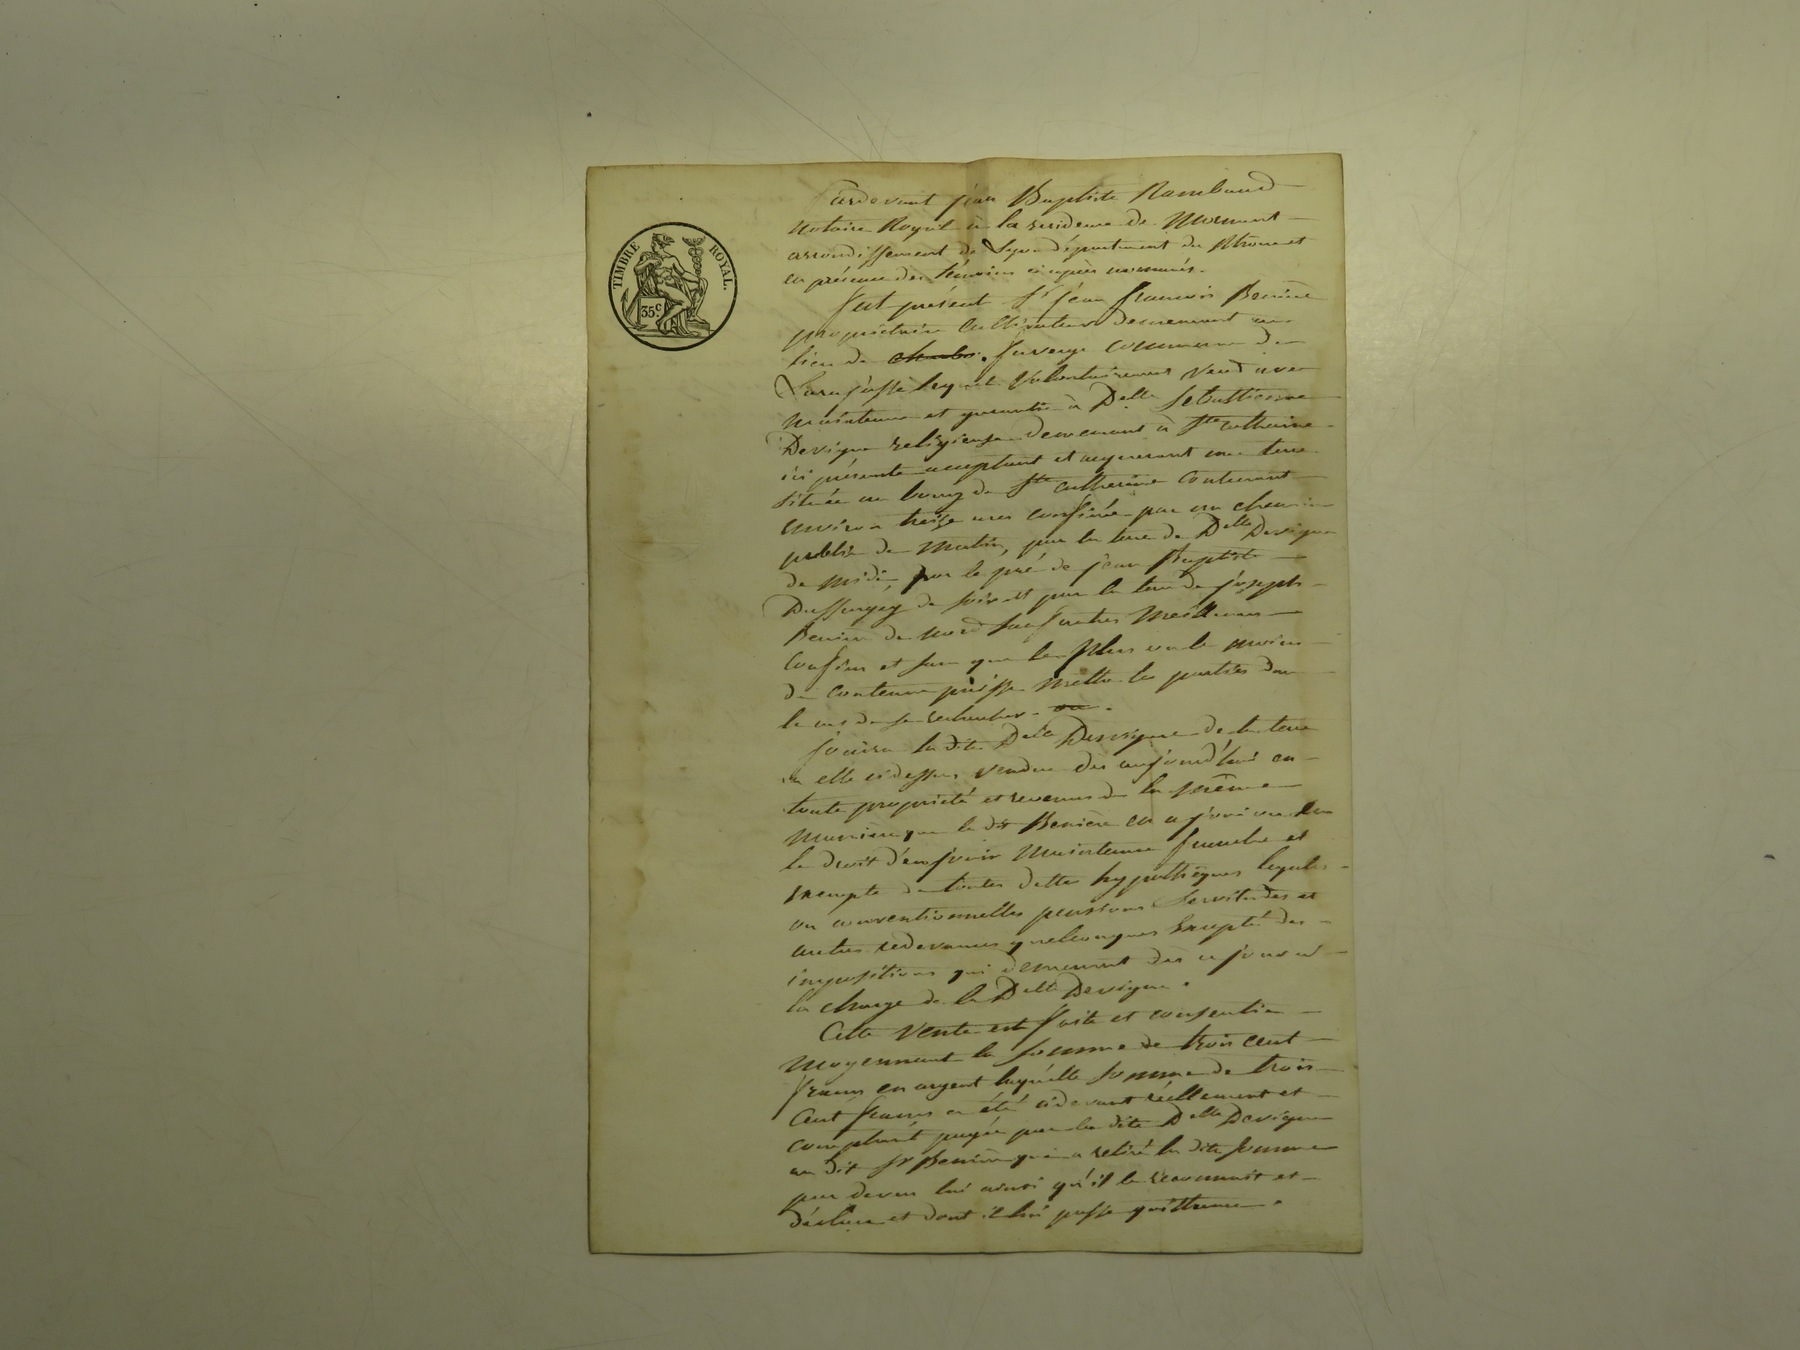 TIMBRE ROYAL.
35c
Pardevant jean Baptiste Rambaud
notaire Royal à la residence de Mornant
arrondissement de Lyon département du Rhône et
en présence des témoins ci après nommés.
fut présent Sr jean francois Benière
propriétaire Cultivateur demeurant au
lieu de commune de
Lequel Volontairement vend avec
maintenue et garantie à Delle Sebastienne
Devigne religieuse demeurant à Ste catherine
ici présente acceptant et acquerant une terre
située au bourg de Ste catherine Contenant
environ treize ares confinée par un chemin
public de matin, par la terre de Delle Devigne
de midi, par le pré de jean Baptiste
de soir et par la terre de joseph
Benière de nord sauf autres Meilleurs
Confins et sans que le plus ou le moins
de contenue puisse mettre les parties dans
le cas de se rechercher. ou.
jouira la dite Delle Devigne de la terre
a elle cidessus vendue dès aujourd'hui en
toute propriété et revenus de la même
manière que le dit Benière en a joui ou eu
le droit d'en jouir Maintenue franche et
exempte de toutes dettes hypothèques legales
ou conventionnelles pensions Servitudes et
autres redevances quelconques Excepté des
impositions qui demeurent dès ce jour à
la charge de la Delle Devigne.
Cette Vente est faite et consentie
moyennant la somme de trois cent
francs en argent laquelle somme de trois
Cent francs a été cidevant réellement et
comptant payée par la dite Delle Devigne
au dit Sr Benière qui a retiré la dite somme
par devers lui ainsi qu'il le reconnait et
déclare et dont il lui passe quittance.